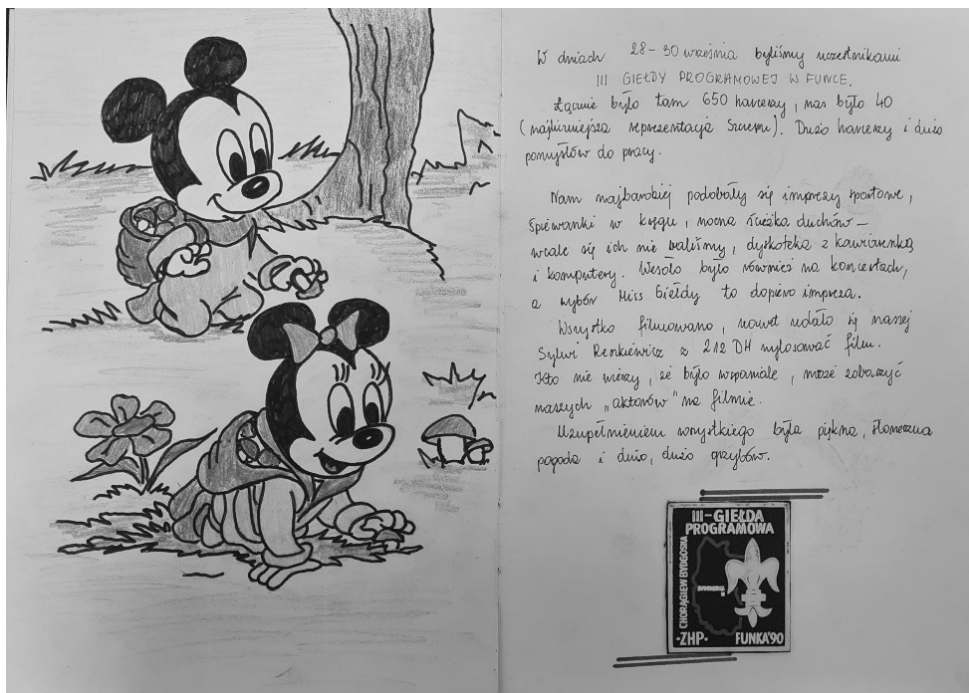 W dniach 28-30 września byliśmy uczestnikami
III GIEŁDY PROGRAMOWEJ W FUNCE.
Łącznie było tam 650 harcerzy, nas było 40
(najliczniejsza reprezentacja Szczepu). Dużo harcerzy i dużo
pomysłów do pracy.
Nam najbardziej podobały się imprezy sportowe,
śpiewanki w kręgu, nocna ścieżka duchów -
wcale się ich nie baliśmy, dyskoteka z kawiarenką
i komputery. Wesoło było również na koncertach,
a wybór Miss Giełdy to dopiero impreza.
Wszystko filmowano, nawet udało się naszej
Sylwi Renkiewicz z 212 DH wylosować film.
Kto nie wierzy, że było wspaniale, może zobaczyć
naszych "aktorów" na filmie.
Uzupełnieniem wszystkiego była piękna, słoneczna
pogoda i dużo, dużo grzybów.
III-GIEŁDA
PROGRAMOWA
CHORĄGIEW BYDGOSKA
-ZHP-
FUNKA'90